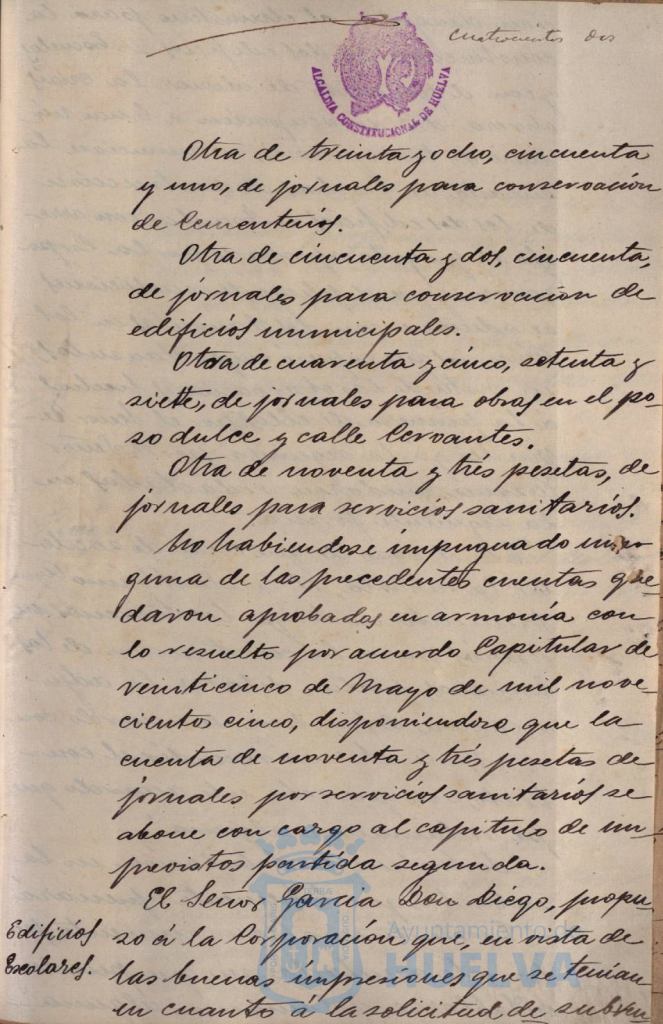 cuatrocientos dos
ALCALDIA CONSTITUCIONAL DE HUELVA
Otra de treinta y ocho, cincuenta
y uno, de jornales para conservación
de Cementerios.
Otra de cincuenta y dos, cincuenta,
de jornales para conservación de
edificios municipales.
Otra de cuarenta y cinco, setenta y
siete, de jornales para obras en el po-
zo dulce y calle Cervantes.
Otra de noventa y trés pesetas, de
jornales para servicios sanitarios.
No habiendose impugnado nin-
guna de las precedentes cuentas que-
daron aprobados en armonía con
lo resuelto por acuerdo Capitular de
veinticinco de Mayo de mil nove-
ciento cinco, disponiendose que la
cuenta de noventa y trés pesetas de
jornales por servicios sanitarios se
abone con cargo al capitulo de im-
previstos partida segunda.
El Señor Garcia Don Diego, propu-
Edificios
Escolares.
so á la Corporación que, en vista de
las buenas impresiones que se tenian
en cuanto á la solicitud de subven
Ayuntamiento de
HUELVA